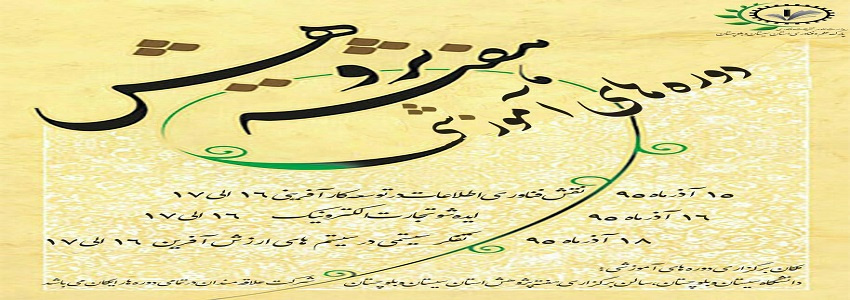 پارک علم و فناوری استان سیستان و بلوچستان
دوره های آموزشی
هفته پژوهش
۱۵ آذر ماه ۹۵ نقش فناوری اطلاعات در توسعه کارآفرینی ۱۶ الی ۱۷
۱۶ آذر ماه ۹۵ ایده شو تجارت الکترونیک ۱۶ الی ۱۷
۱۸ آذر ماه ۹۵ تفکر سیستمی در سیستم های ارزش آفرین ۱۶ الی ۱۷
مکان برگزاری دوره های آموزشی :
دانشگاه سیستان و بلوچستان، سالن برگزاری هفته پژوهش استان سیستان و بلوچستان شرکت علاقه مندان در تمامی دوره ها رایگان می باشد